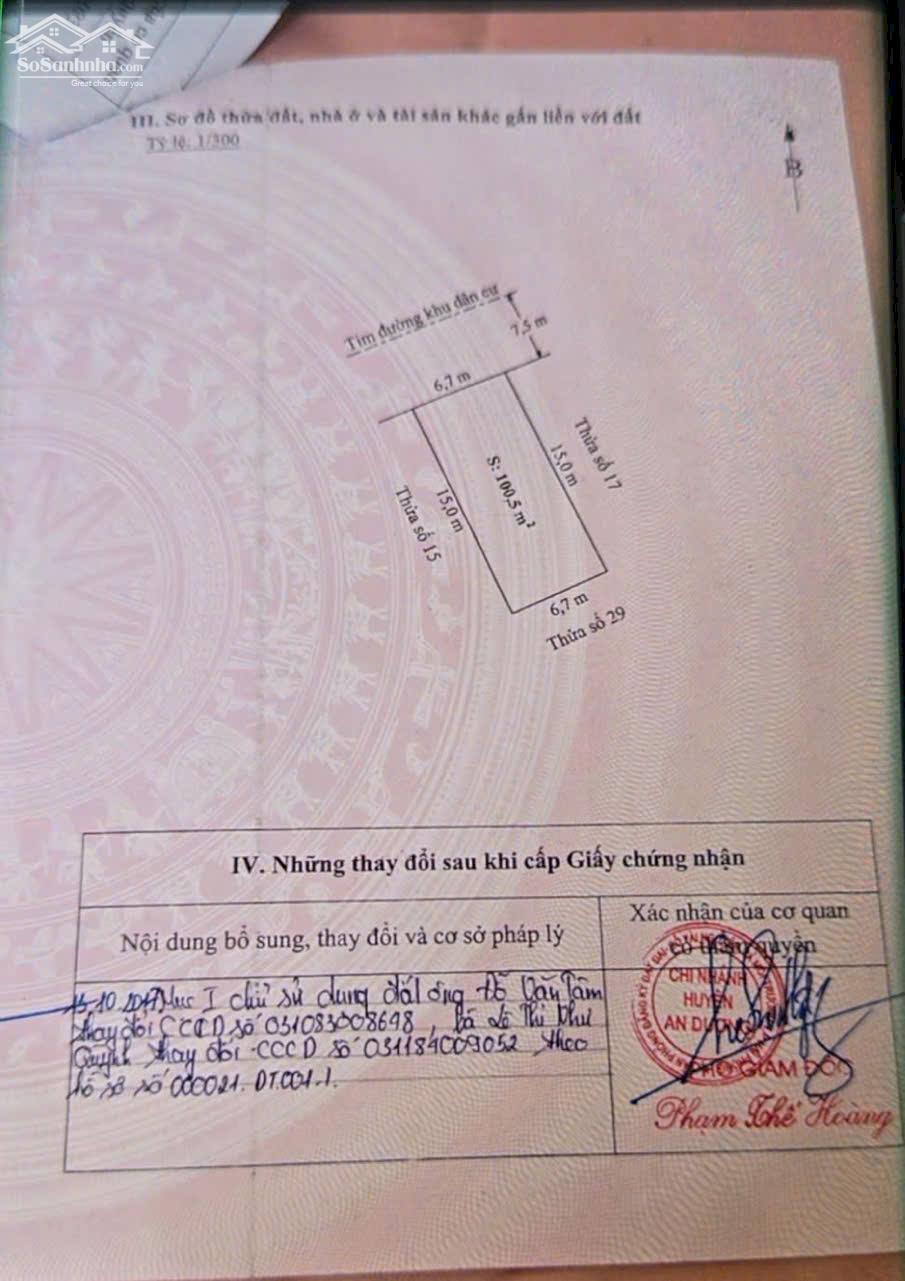 SoSanhnha.com
Great choice for you
III. Sơ đồ thửa đất, nhà ở và tài sản khác gắn liền với đất
Tỷ lệ: 1/300
B
Tim đường khu dân cư
7,5 m
6,7 m
Thửa số 17
15,0 m
S: 100,5 m²
15,0 m
Thửa số 15
6,7 m
Thửa số 29
IV. Những thay đổi sau khi cấp Giấy chứng nhận
Nội dung bổ sung, thay đổi và cơ sở pháp lý
Xác nhận của cơ quan
có thẩm quyền
Mục I chủ sử dụng đất ông Đỗ Văn Tâm
thay đổi CCCD số 031083008698, bà Lê Thị Như
Quỳnh thay đổi CCCD số 031184009052 theo
hồ sơ số 000021.DT.001-1.
CHI NHÁNH
HUYỆN
AN DƯƠNG
PHÓ GIÁM ĐỐC
Phạm Thế Hoàng